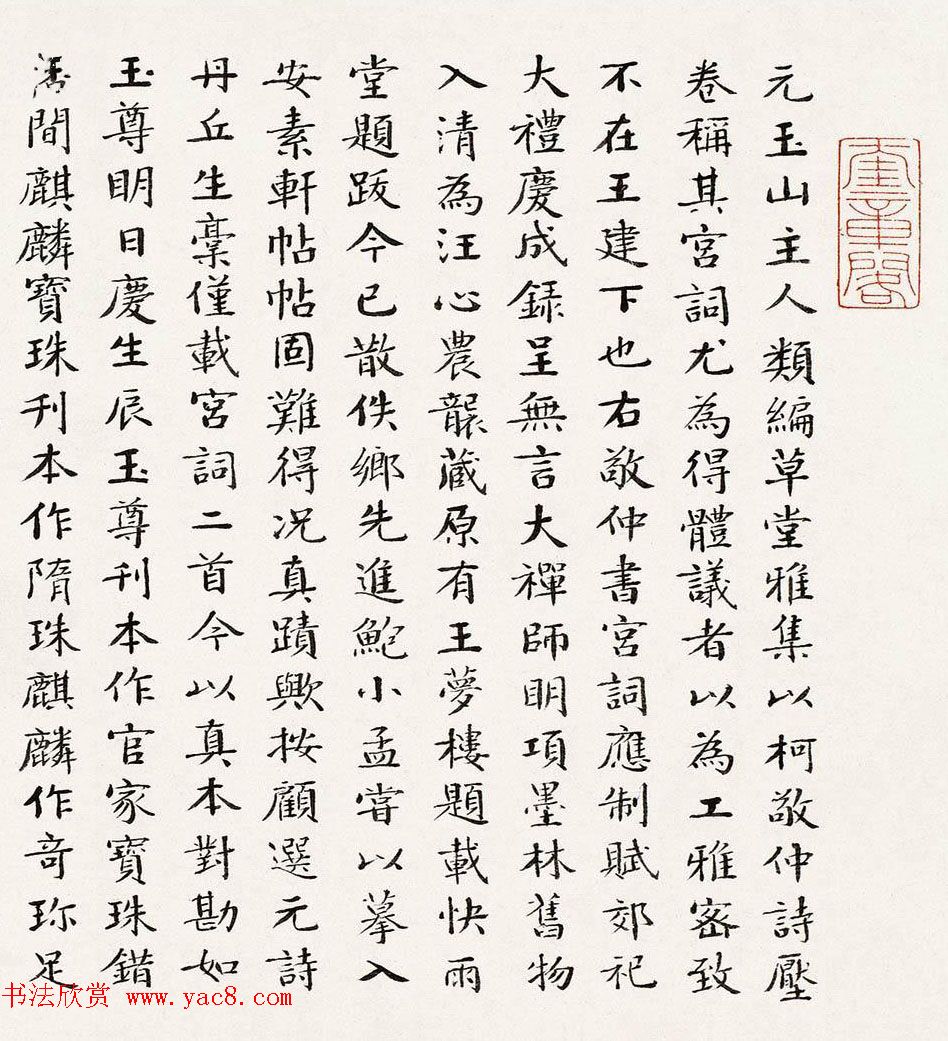 元玉山主人類編草堂雅集以柯敬仲詩壓
卷稱其宮詞尤為得體議者以為工雅密致
不在王建下也右敬仲書宮詞應制賦郊祀
大禮慶成錄呈無言大禪師明項墨林舊物
入清為汪心農襲藏原有王夢樓題載快雨
堂題跋今已散佚鄉先進鮑小孟嘗以摹入
安素軒帖帖固難得況真蹟歟按顧選元詩
丹丘生稾僅載宮詞二首今以真本對勘如
玉尊明日慶生辰玉尊刊本作官家寶珠錯
落間麒麟寶珠刊本作隋珠麒麟作奇珍足
书法欣赏 www.yac8.com